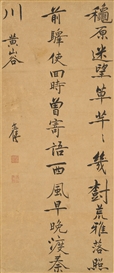 穐原迷望草芊芊幾樹荒雅落照
前驛使回時曾寄語西風早晚渡秦
川
黃山谷